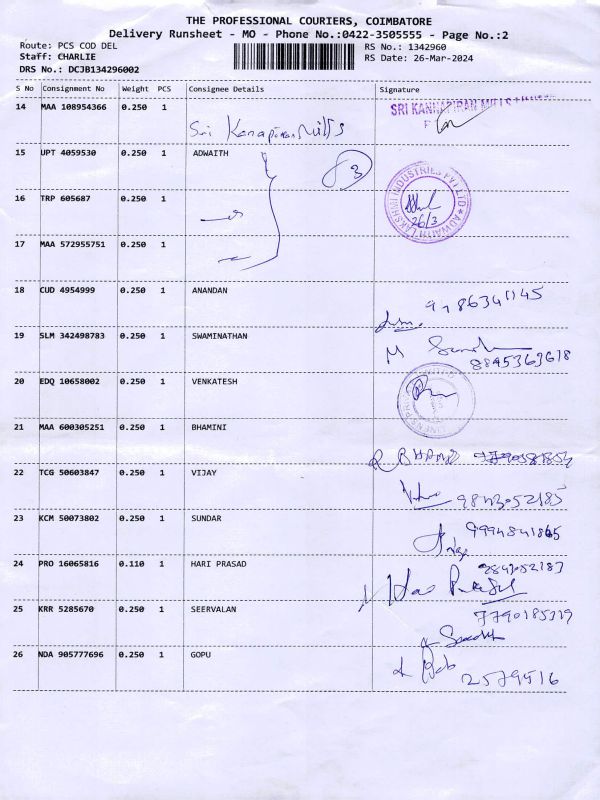 THE PROFESSIONAL COURIERS, COIMBATORE
Delivery Runsheet - MO - Phone No.:0422-3505555 - Page No.:2
Route: PCS COD DEL
RS No.: 1342960
Staff: CHARLIE
RS Date: 26-Mar-2024
DRS No.: DCJB134296002
S No Consignment No Weight PCS Consignee Details Signature
14 MAA 108954366 0.250 1 Sri Kannapiran Mills
15 UPT 4059530 0.250 1 ADWAITH
16 TRP 605687 0.250 1
ADWAITH LAKSHMI INDUSTRIES PVT LTD
26/3
17 MAA 572955751 0.250 1
18 CUD 4954999 0.250 1 ANANDAN
19 SLM 342498783 0.250 1 SWAMINATHAN
8845363618
20 EDQ 10658002 0.250 1 VENKATESH
21 MAA 600305251 0.250 1 BHAMINI
22 TCG 50603847 0.250 1 VIJAY
9843052183
23 KCM 50073802 0.250 1 SUNDAR
9994841865
24 PRO 16065816 0.110 1 HARI PRASAD
9843052183
25 KRR 5285670 0.250 1 SEERVALAN
7790185319
26 NDA 905777696 0.250 1 GOPU
2579516